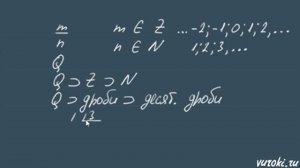 m/n m ∈ Z ...-2;-1;0;1;2,...
n ∈ N 1;2;3,...
Q
Q ⊃ Z ⊃ N
Q ⊃ дроби ⊃ десят. дроби
1,3
vuroki.ru